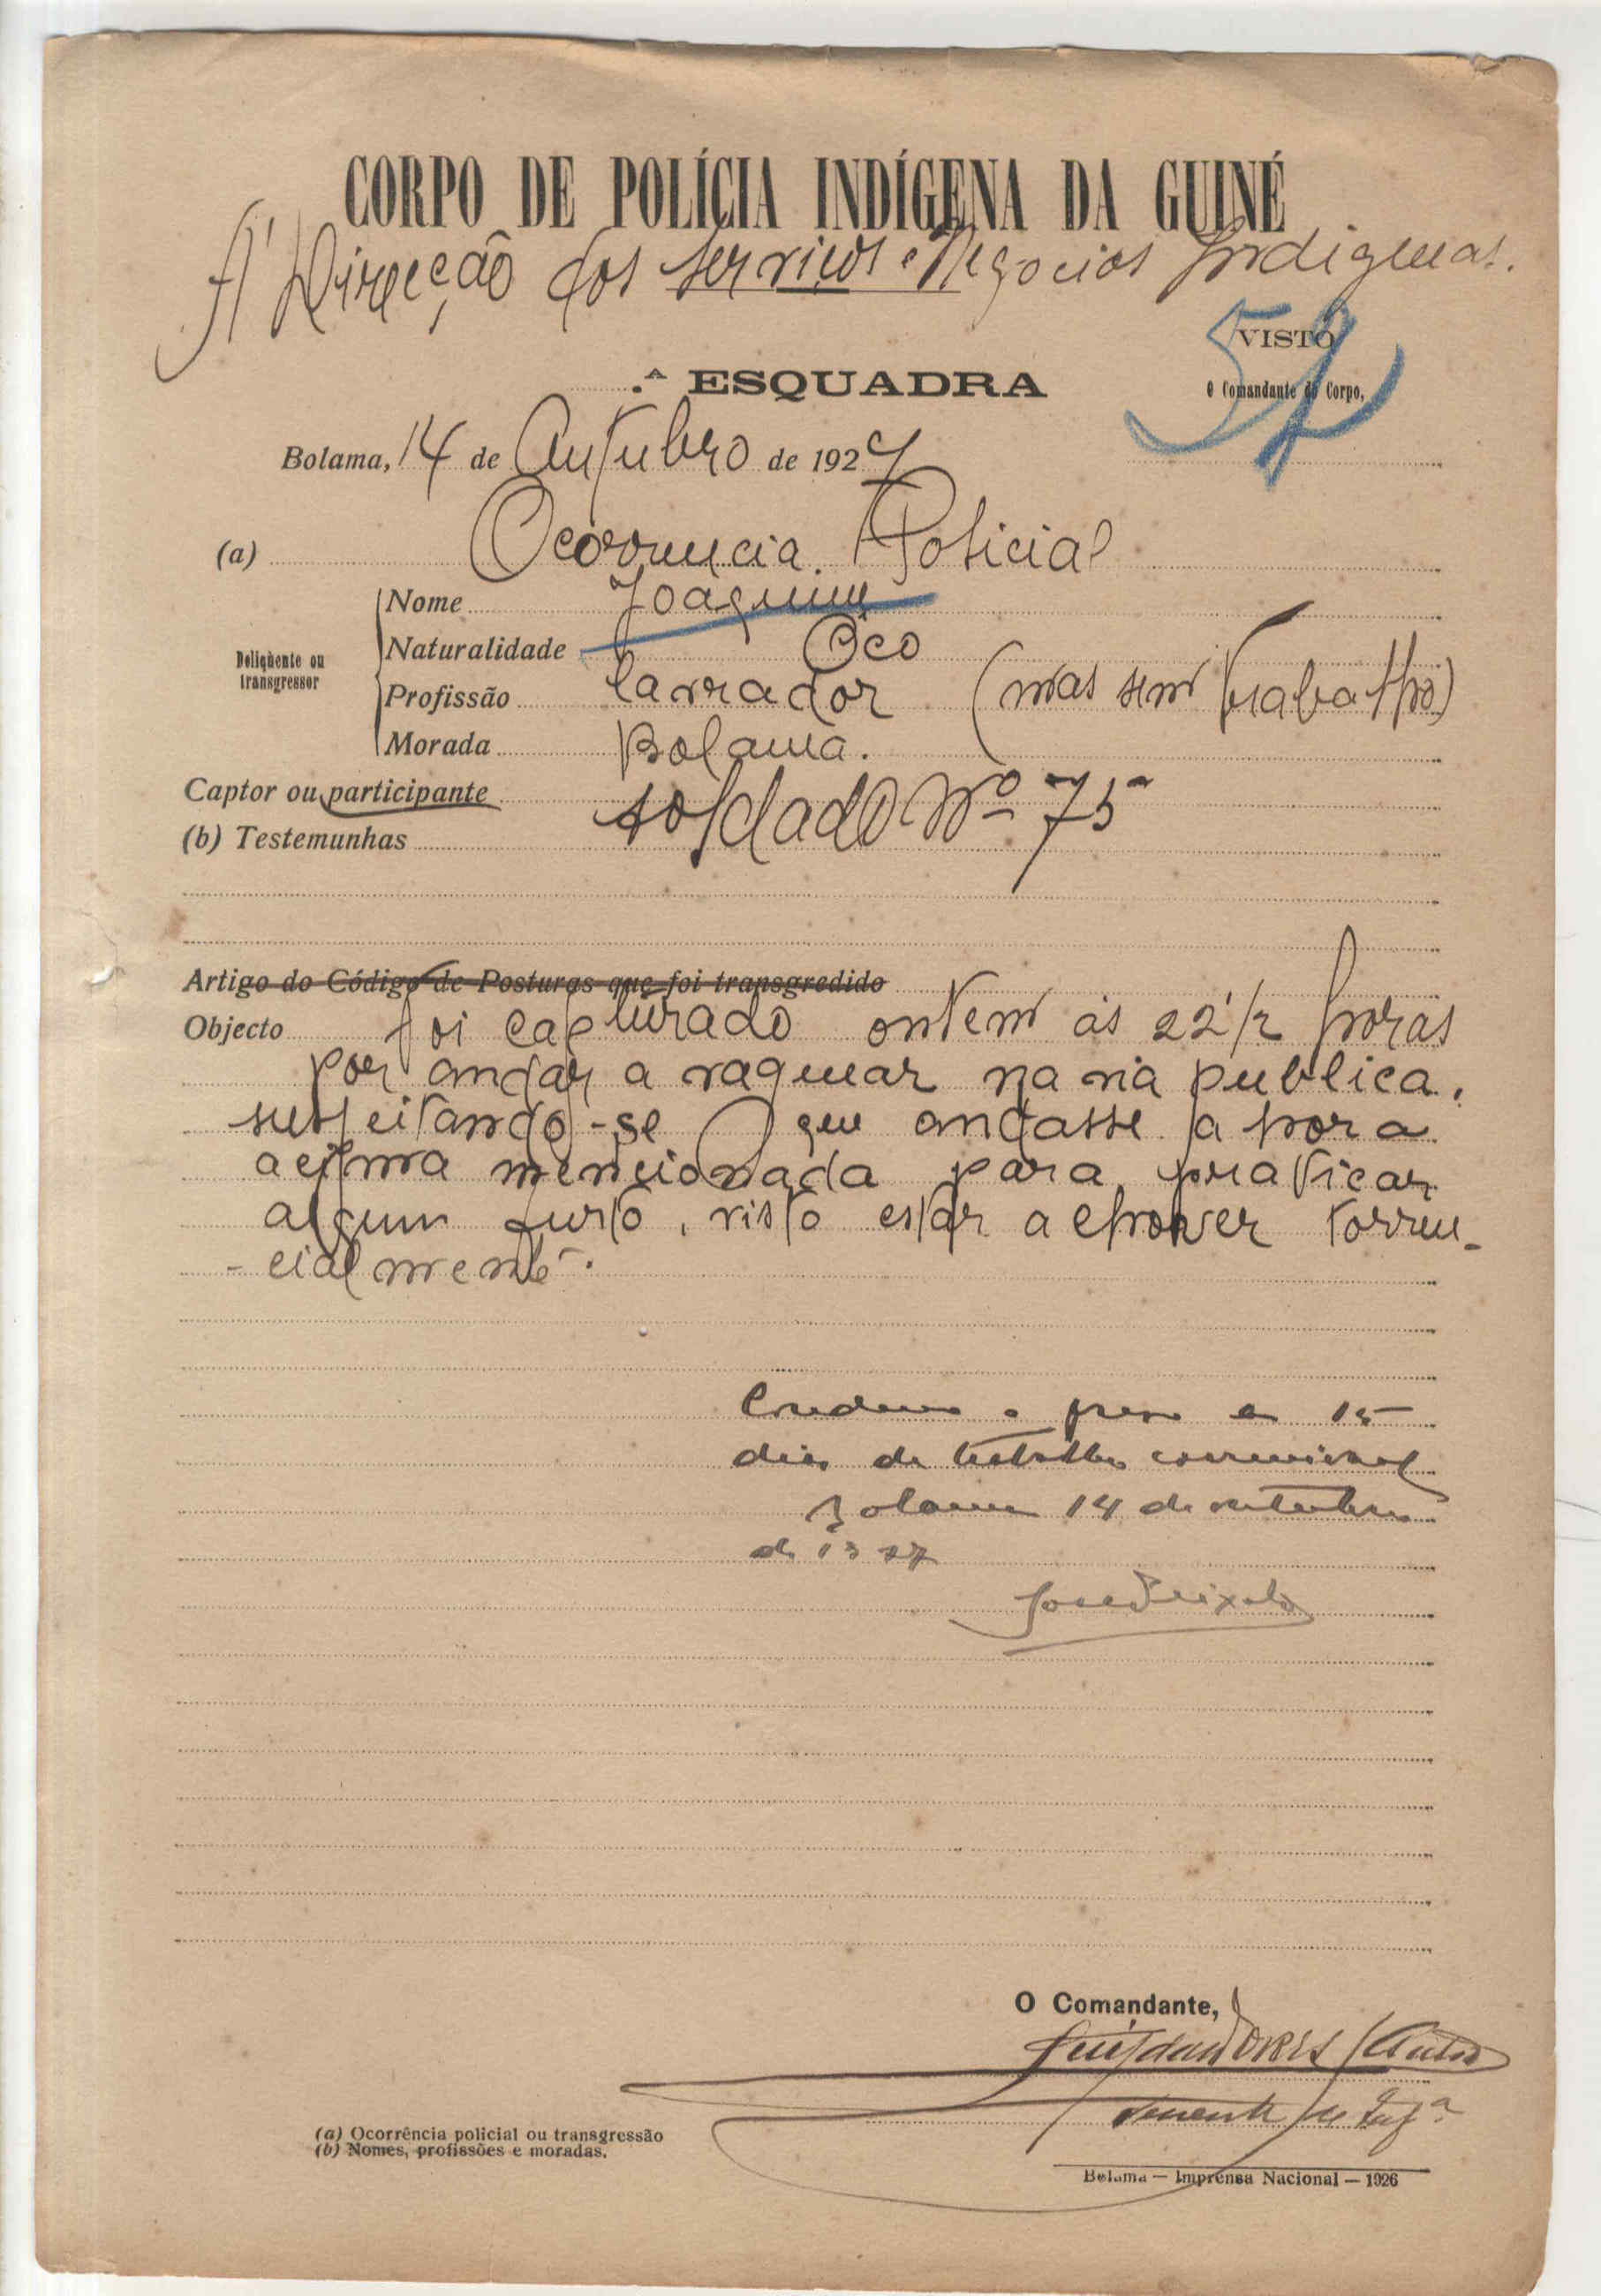 CORPO DE POLÍCIA INDÍGENA DA GUINÉ
Á Direcção dos Serviços e Negocios Indigenas.
VISTO
O Comandante do Corpo,
.ª ESQUADRA
Bolama, 14 de Outubro de 1927
(a) Ocorrencia Policial
Delinqüente ou transgressor
Nome Joaquim
Naturalidade Oco
Profissão lavrador (mas sem trabalho)
Morada Bolama.
Captor ou participante soldado Nº 75
(b) Testemunhas
Artigo do Código de Posturas que foi transgredido
Objecto foi capturado ontem ás 22 1/2 horas
por andar a vaguear na via publica,
suspeitando-se que andasse a hora
acima mencionada para praticar
algum furto, visto estar a chover torren-
-cialmente.
Condeno o preso em 15
dias de trabalho correcional
Bolama 14 de outubro
de 1927
O Comandante,
Tenente de Infª
(a) Ocorrência policial ou transgressão
(b) Nomes, profissões e moradas.
Bolama — Imprensa Nacional — 1926